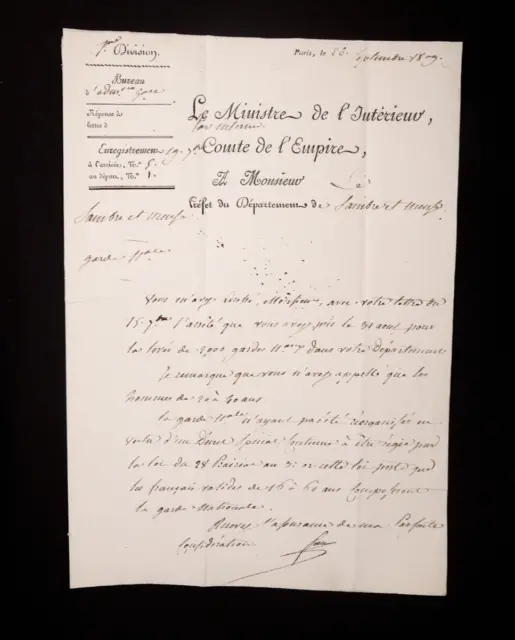 1ère Division.
Paris, le 26 Septembre 1809.
Bureau
d'admon gale
Réponse à
lettre d
Le Ministre de l'Intérieur,
par interim
Enregistrement
à l'arrivée, No. 5.
au départ, No. 1.
Comte de l'Empire,
A Monsieur Le
Préfet du Département de Sambre et Meuse
Sambre et Meuse
garde Nale
Vous m'avez envoyé, Monsieur, avec votre lettre du
15. 7bre l'arrêté que vous avez pris le 31 aout pour
la levée de 2000 gardes Naux dans votre Département
Je remarque que vous n'avez appelé que les
hommes de 20 à 30 ans
la garde Nale n'ayant pas été réorganisée en
vertu d'un Décret spécial continue à être régie par
la loi du 28 Prairial an 3: or cette loi porte que
les français valides de 16 à 60 ans composeront
la garde Nationale.
Recevez l'assurance de ma Parfaite
Considération